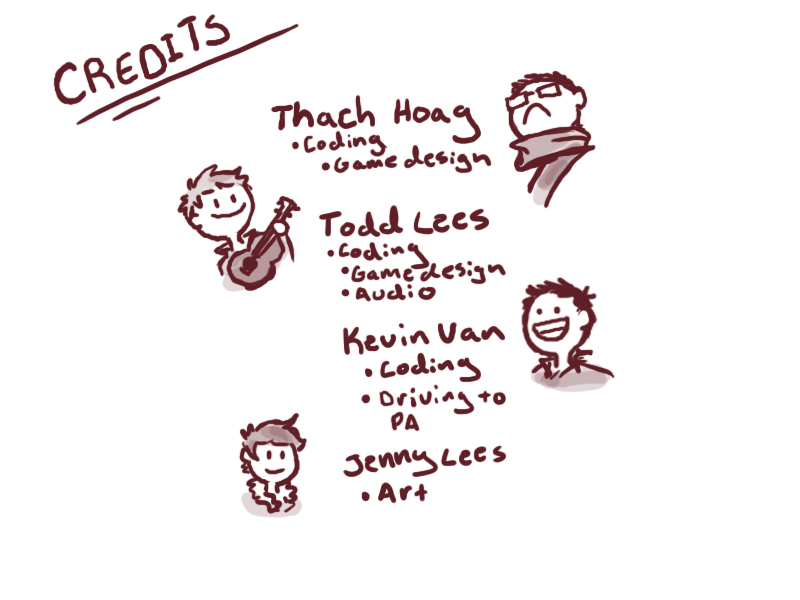 CREDITS
Thach Hoag
• Coding
• Game design
Todd Lees
• Coding
• Game design
• Audio
Kevin Van
• Coding
• Driving to
PA
Jenny Lees
• Art